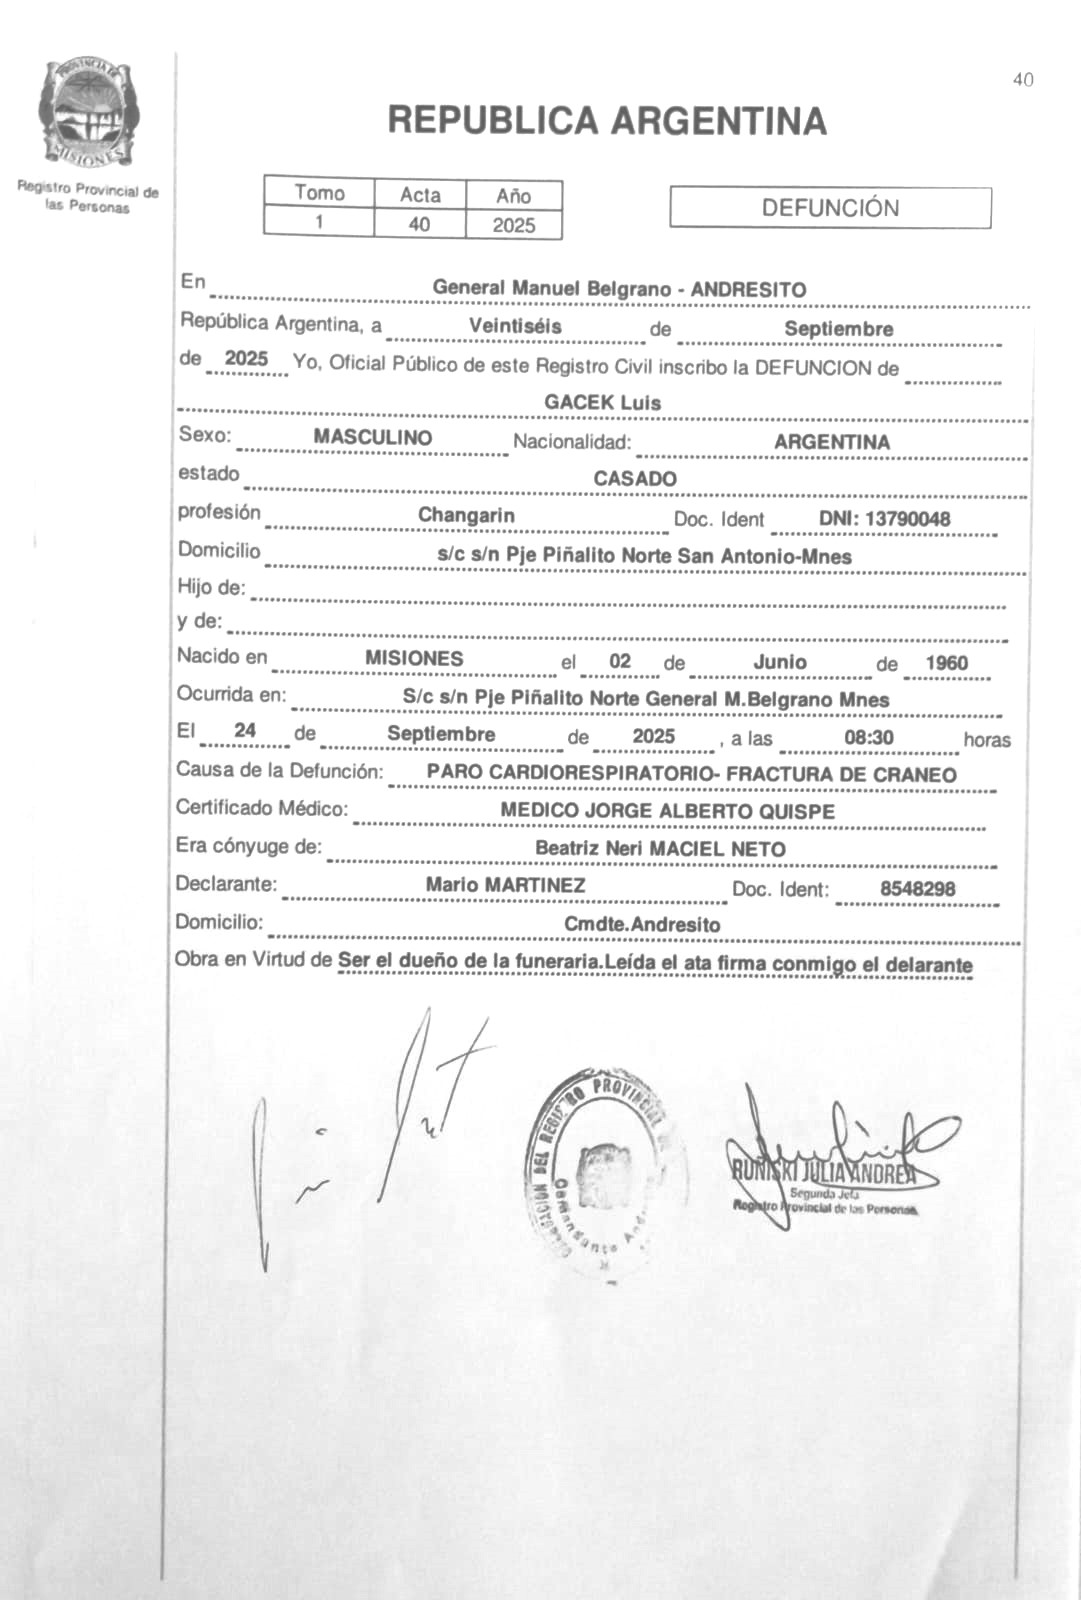 40
PROVINCIA DE
MISIONES
Registro Provincial de
las Personas
REPUBLICA ARGENTINA
Tomo Acta Año
1 40 2025
DEFUNCIÓN
En General Manuel Belgrano - ANDRESITO
República Argentina, a Veintiséis de Septiembre
de 2025 Yo, Oficial Público de este Registro Civil inscribo la DEFUNCION de
GACEK Luis
Sexo: MASCULINO Nacionalidad: ARGENTINA
estado CASADO
profesión Changarin Doc. Ident DNI: 13790048
Domicilio s/c s/n Pje Piñalito Norte San Antonio-Mnes
Hijo de:
y de:
Nacido en MISIONES el 02 de Junio de 1960
Ocurrida en: S/c s/n Pje Piñalito Norte General M.Belgrano Mnes
El 24 de Septiembre de 2025 , a las 08:30 horas
Causa de la Defunción: PARO CARDIORESPIRATORIO- FRACTURA DE CRANEO
Certificado Médico: MEDICO JORGE ALBERTO QUISPE
Era cónyuge de: Beatriz Neri MACIEL NETO
Declarante: Mario MARTINEZ Doc. Ident: 8548298
Domicilio: Cmdte.Andresito
Obra en Virtud de Ser el dueño de la funeraria.Leída el ata firma conmigo el delarante
DEL REGISTRO PROVINCIAL
RUNISKI JULIA ANDREA
Segunda Jefa
Registro Provincial de las Personas